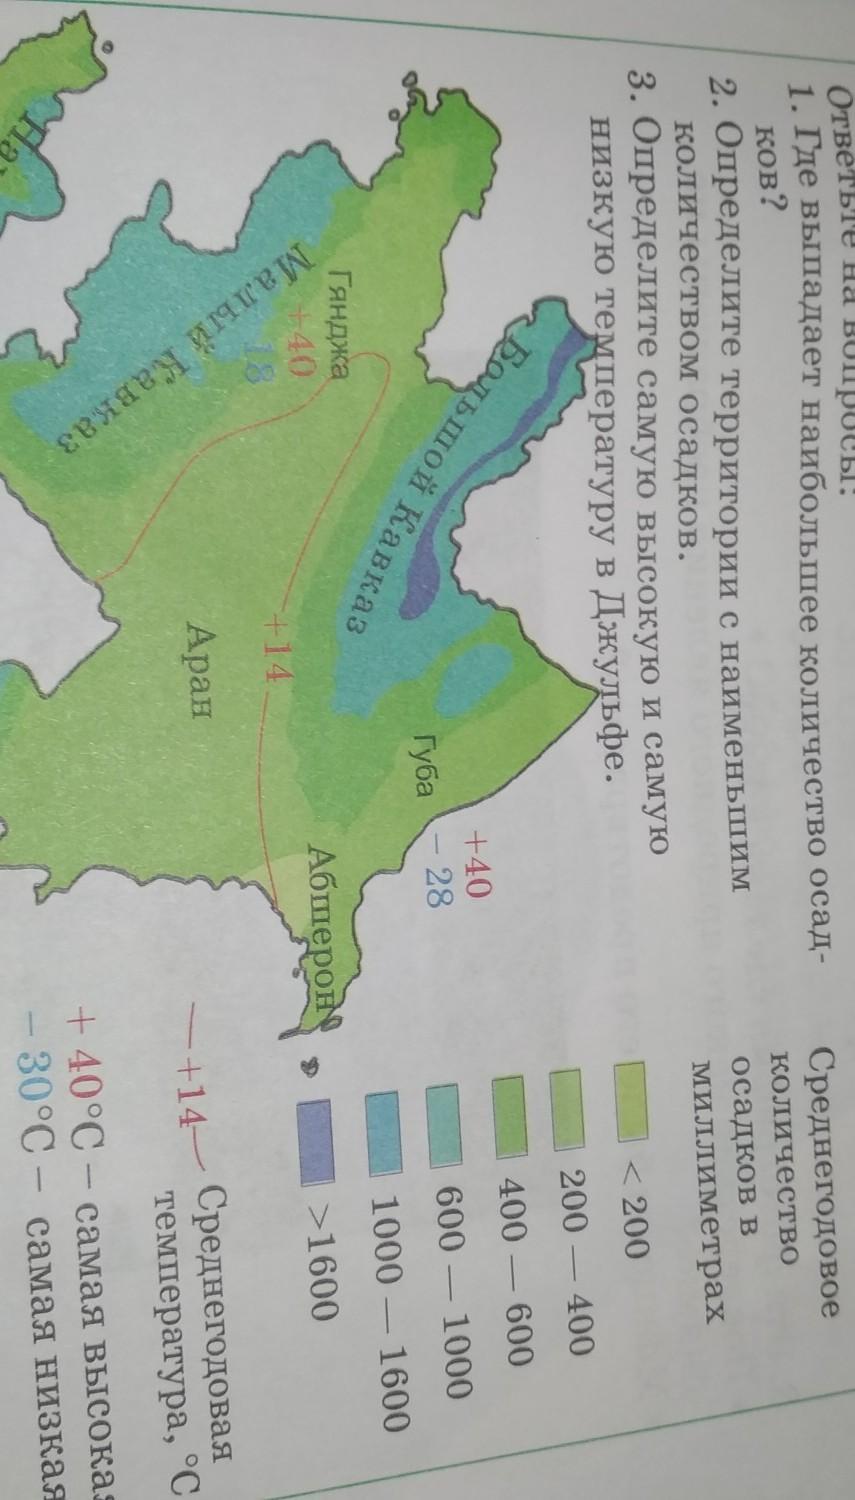 Ответьте на вопросы:
1. Где выпадает наибольшее количество осад-
ков?
2. Определите территории с наименьшим
количеством осадков.
3. Определите самую высокую и самую
низкую температуру в Джульфе.
Большой Кавказ
Губа
+40
- 28
Гянджа
+40
18
Малый Кавказ
+14
Абшерон
Аран
На
Среднегодовое
количество
осадков в
миллиметрах
< 200
200 — 400
400 — 600
600 — 1000
1000 — 1600
>1600
—+14— Среднегодовая
температура, °C
+ 40°C – самая высокая
- 30°C – самая низкая